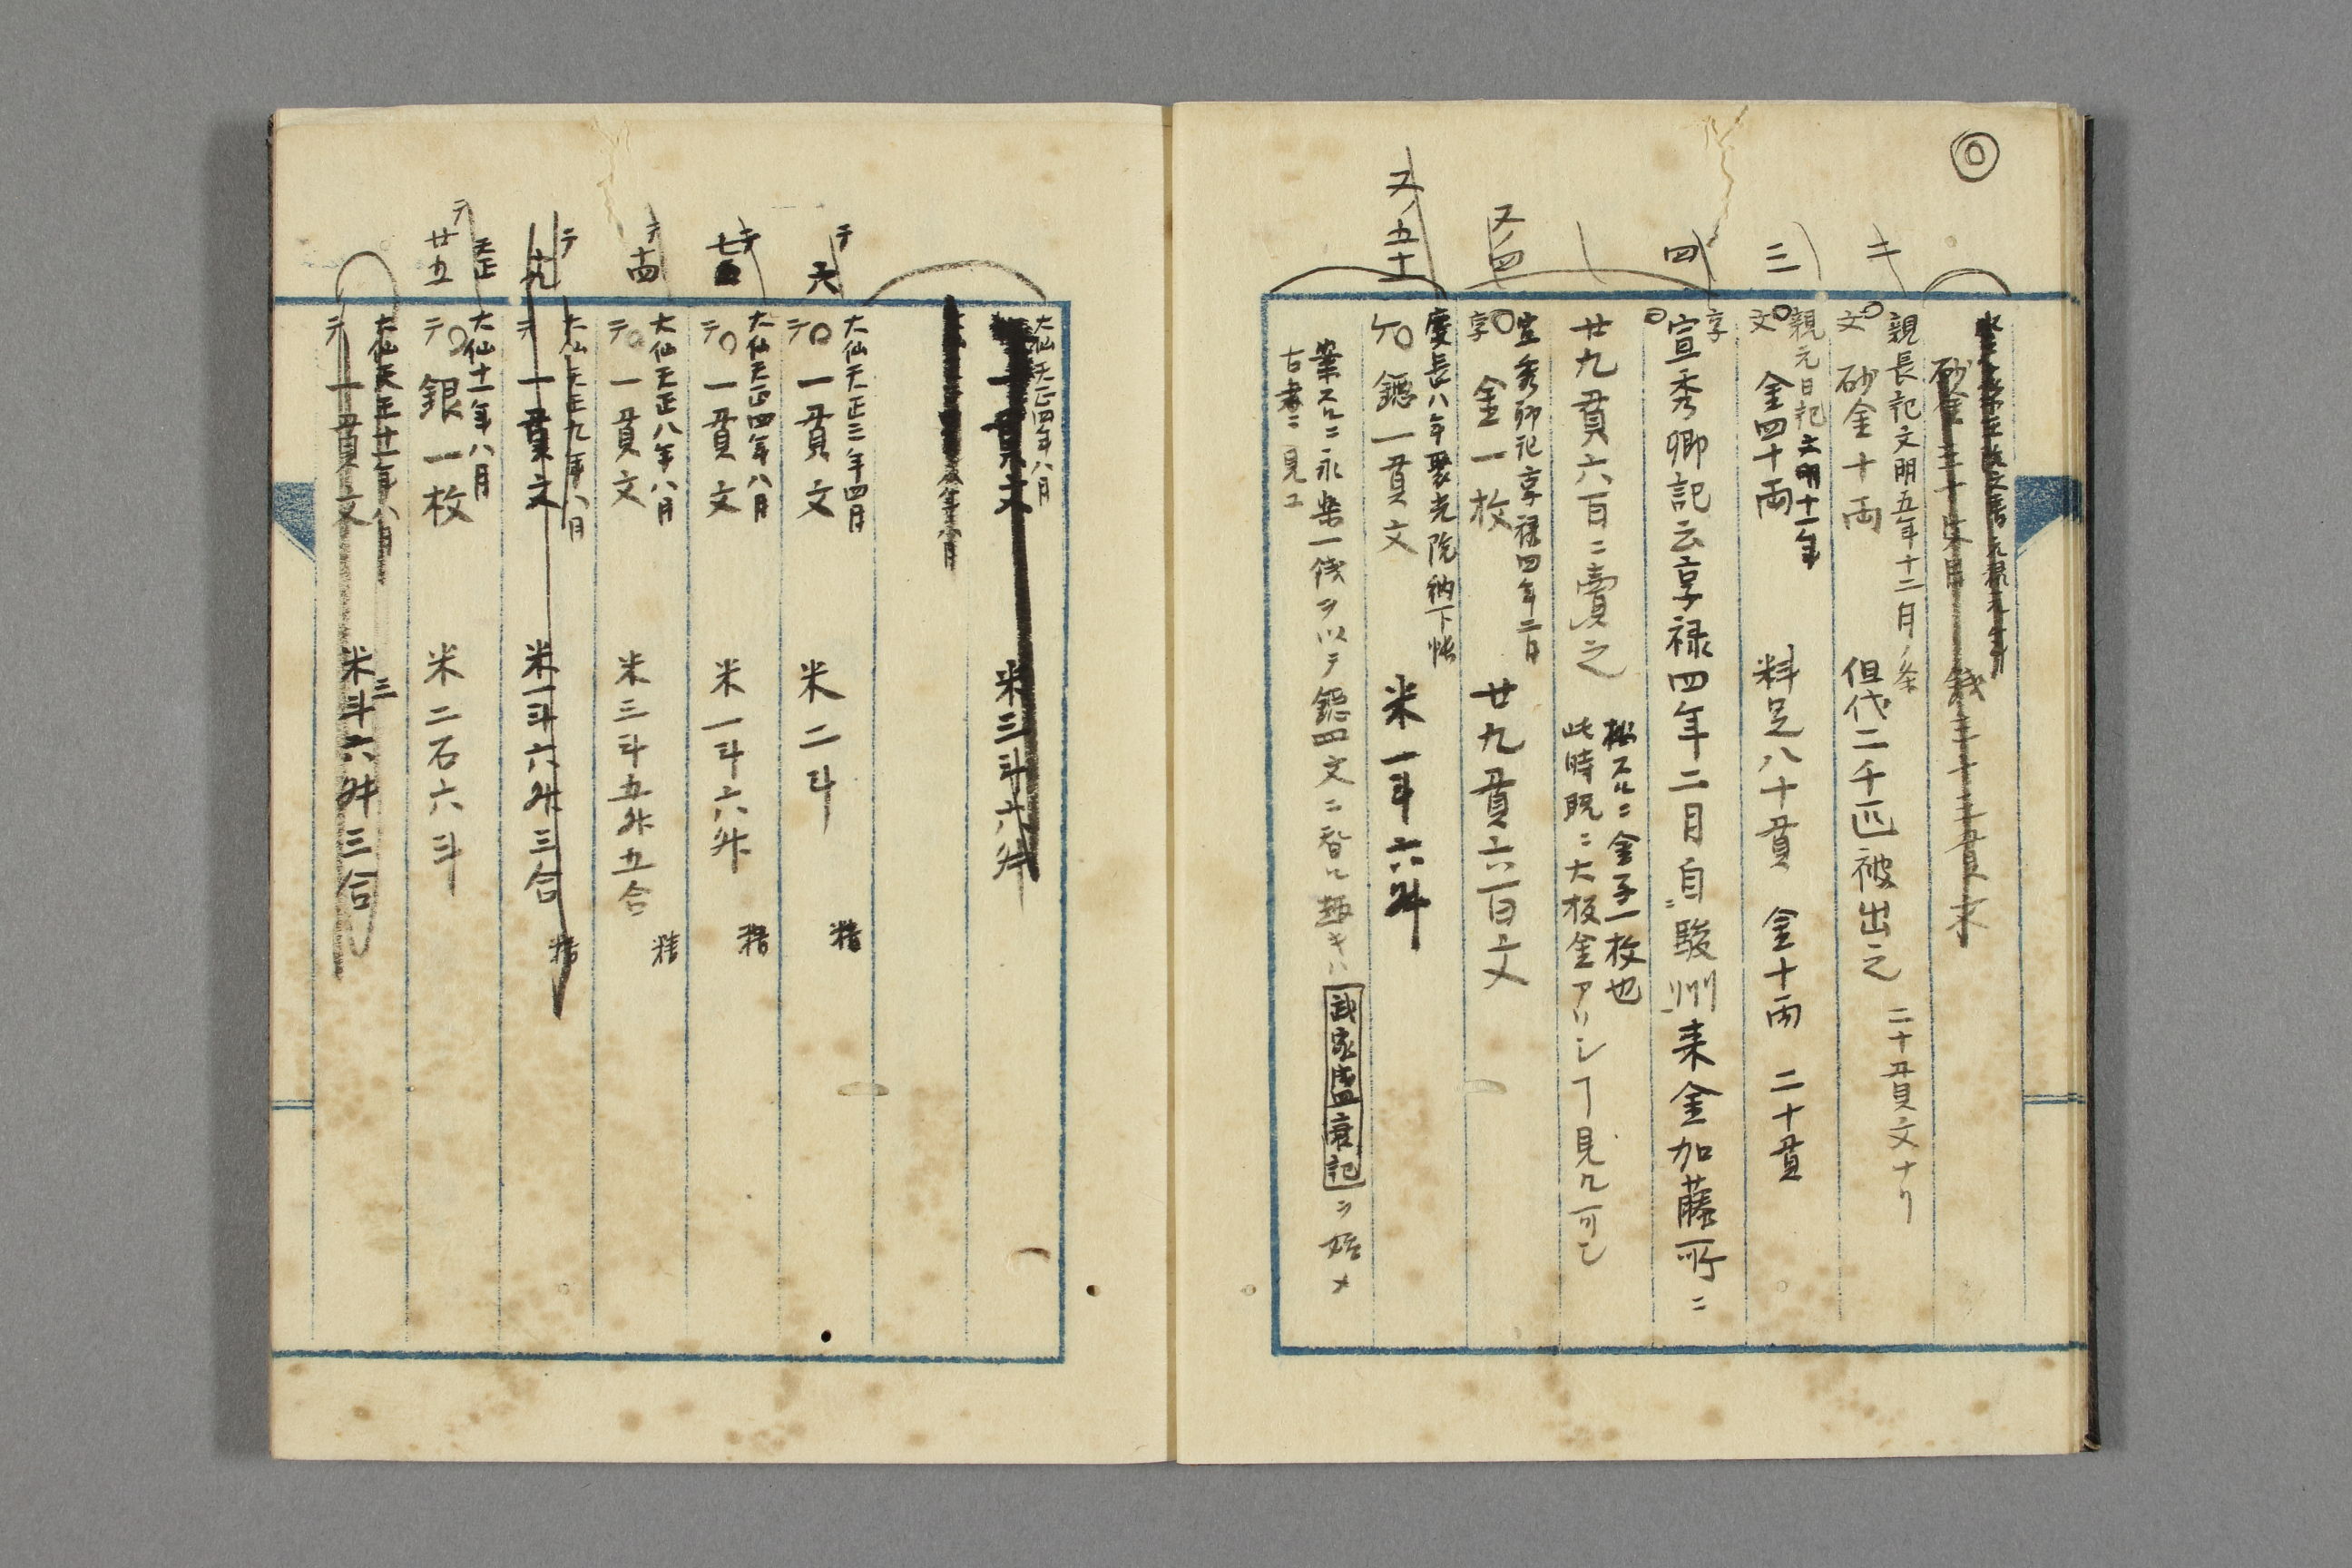 二
親長記文明五年十二月ノ条
文
砂金十両
但代二千匹被出之
二十貫文ナリ
三
親元日記文明十一年
文
金四十両
料足八十貫
金十両
二十貫
四
享
宣秀卿記云享禄四年二月自駿州来金加藤所ニ
廿九貫六百ニ賣之
桉スルニ金子一枚也
此時既ニ大板金アリシヿ見ル可シ
又ノ四
宣秀卿記享禄四年二月
享
金一枚
廿九貫六百文
又ノ五十
慶長八年聚光院納下帳
ケ
鐚一貫文
米一斗六升
業スルニ永楽一銭ヲ以テ鐚四文ニ替ル
武家盛衰記
ヲ始メ
古書ニ見ユ
大仙天正四年八月
一貫文
米三斗六升
テ
六
大仙天正三年四月
テ
一貫文
米二斗
テ
七
大仙天正四年八月
テ
一貫文
米一斗六升
テ
十四
大仙天正八年八月
テ
一貫文
米三斗五升五合
テ
十九
大仙天正九年八月
テ
一貫文
米一斗六升三合
天正
テ
廿五
大仙十一年八月
テ
銀一枚
米二石六斗
大仙天正十一年八月
テ
一貫文
米三斗六升三合